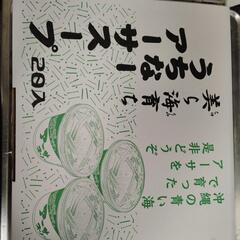 美ら海育ち
うちなー
アーサスープ
20入
沖縄の青い海
で育った
アーサを
是非どうぞ